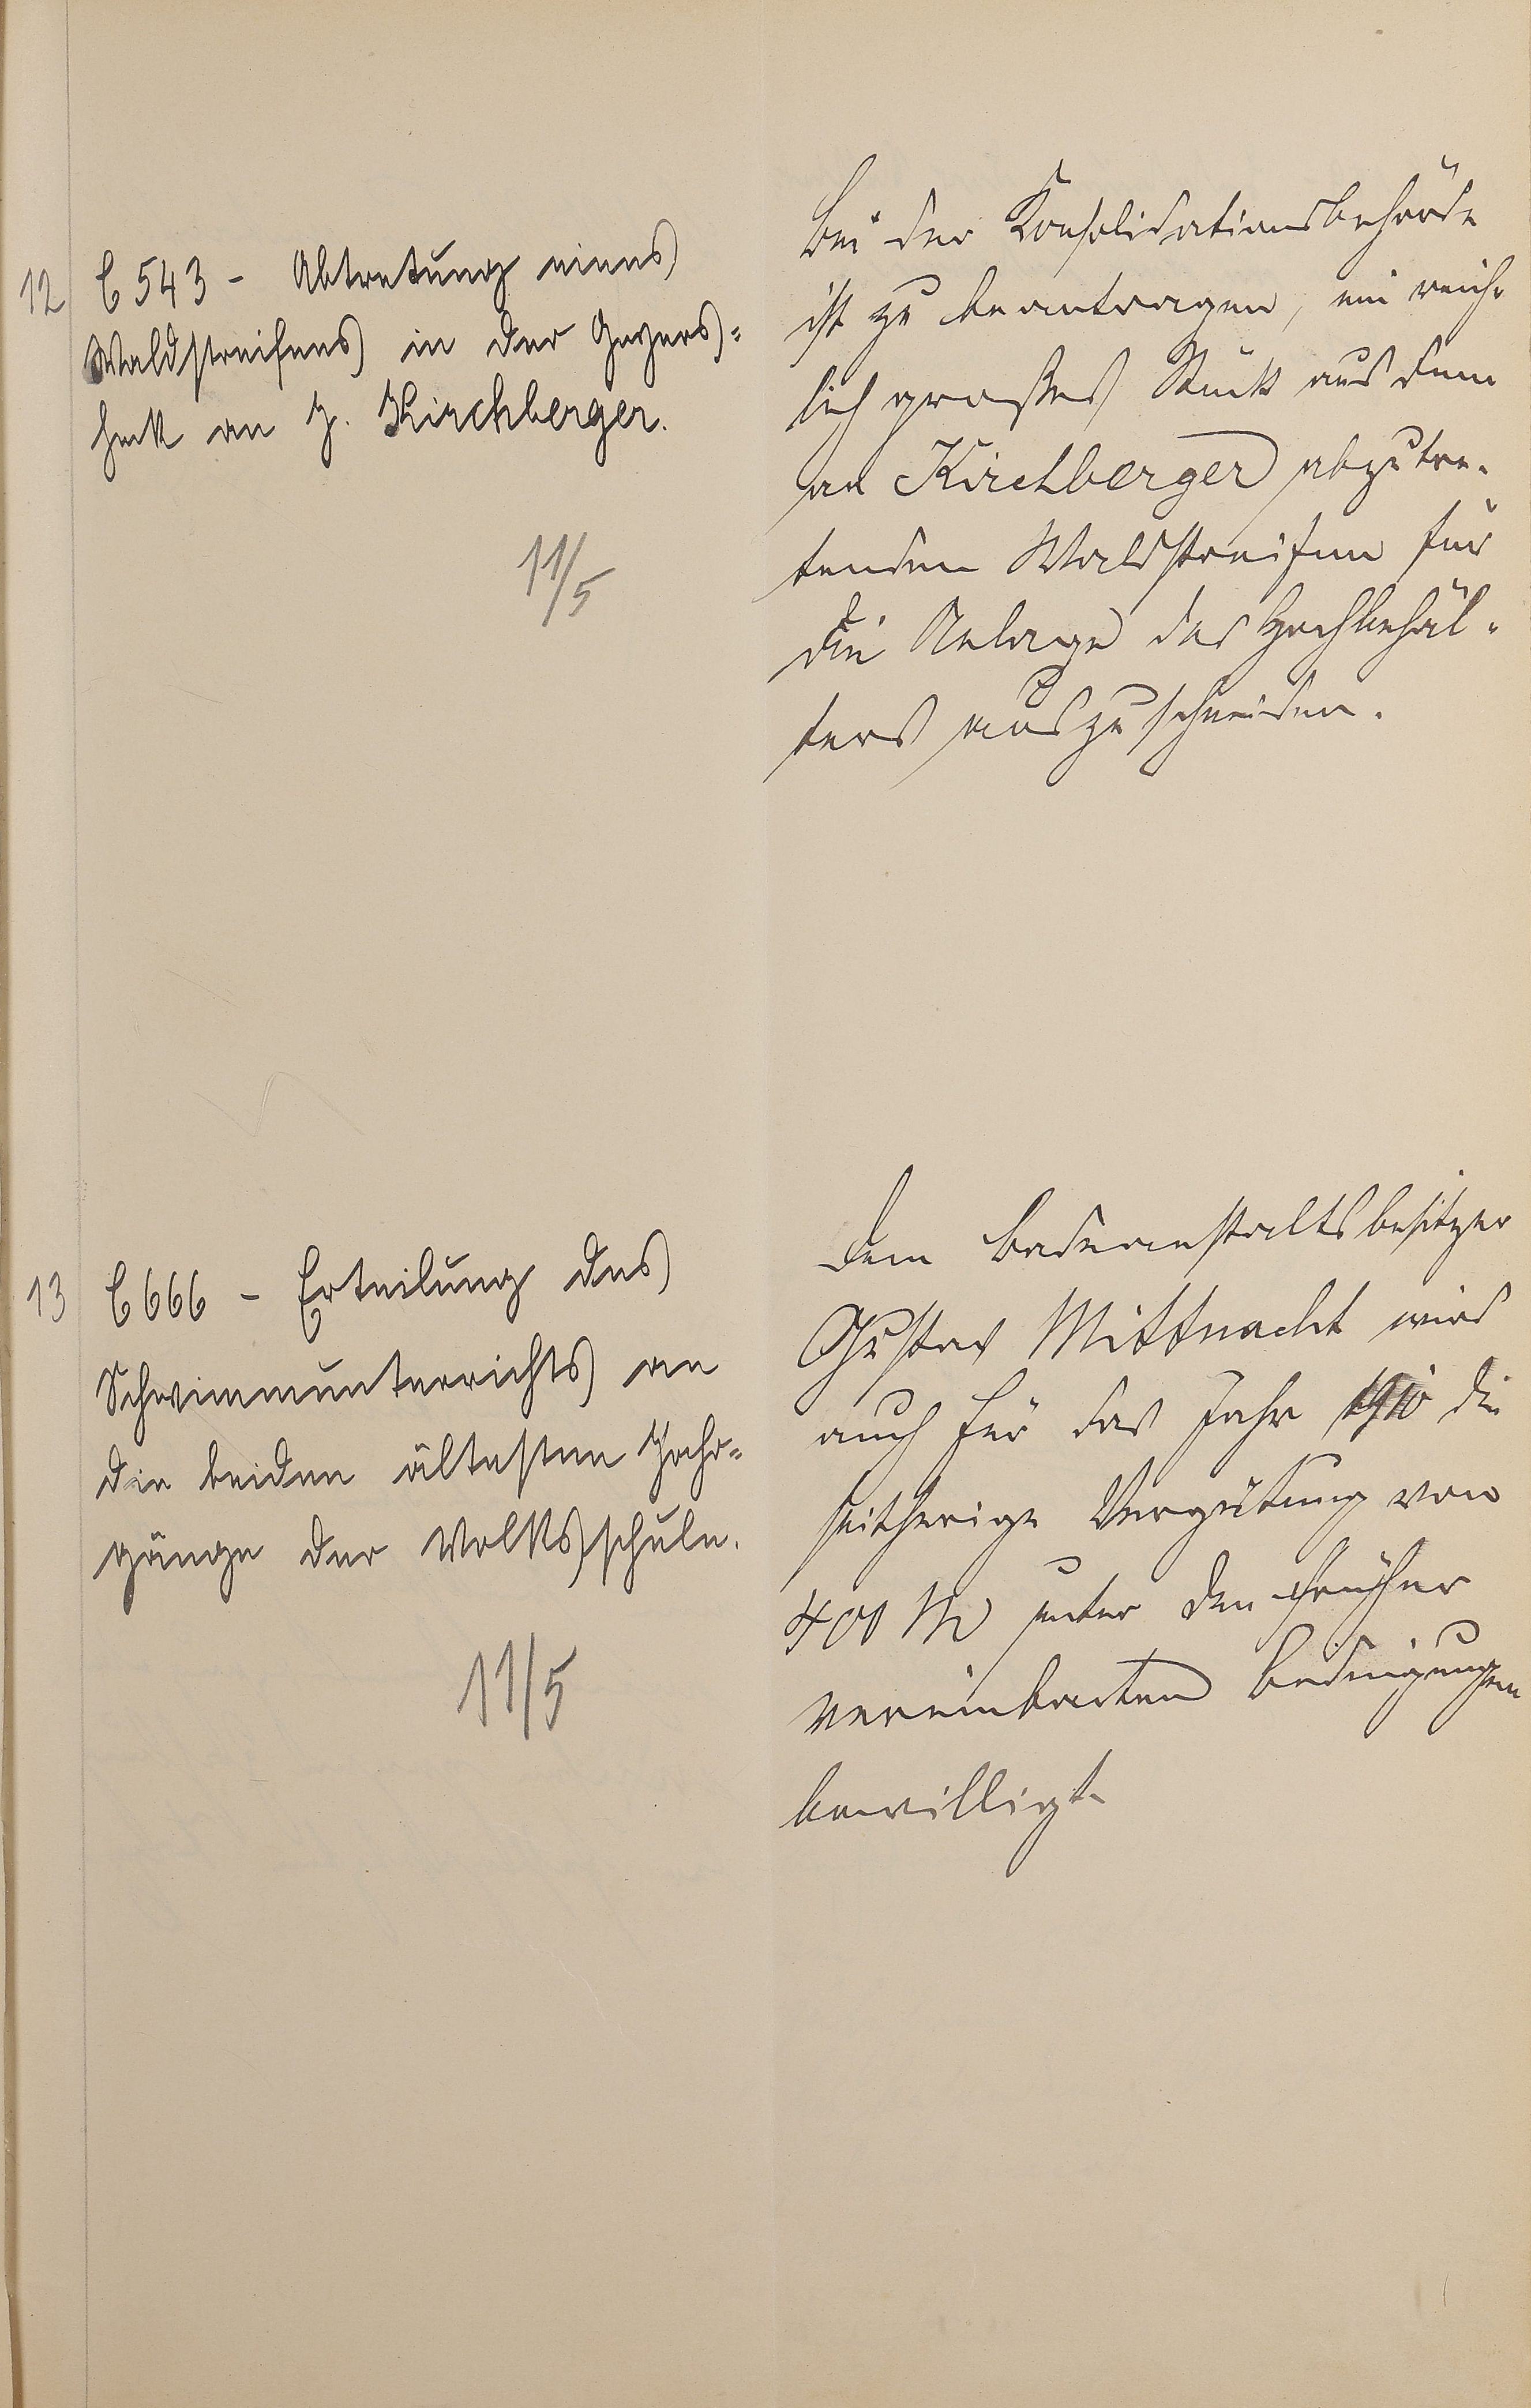 12
C 543 - Abtretung eines
Waldstreifens in der Geyers-
heck an J. Kirchberger.
11/5
Bei der Konsolidationsbehörde
ist zu beantragen, ein reich-
lich großes Stück aus dem
an Kirchberger abzutre-
tenden Waldstreifen für
die Anlage des Hochbehäl-
ters auszuscheiden.
13
C 666 - Erteilung des
Schwimmunterrichts an
die beiden ältesten Jahr-
gänge der Volksschule.
11/5
Dem Badeanstaltsbesitzer
Gustav Mittnacht wird
auch für das Jahr 1910 die
seitherige Vergütung von
400 M unter den früher
vereinbarten Bedingungen
bewilligt.